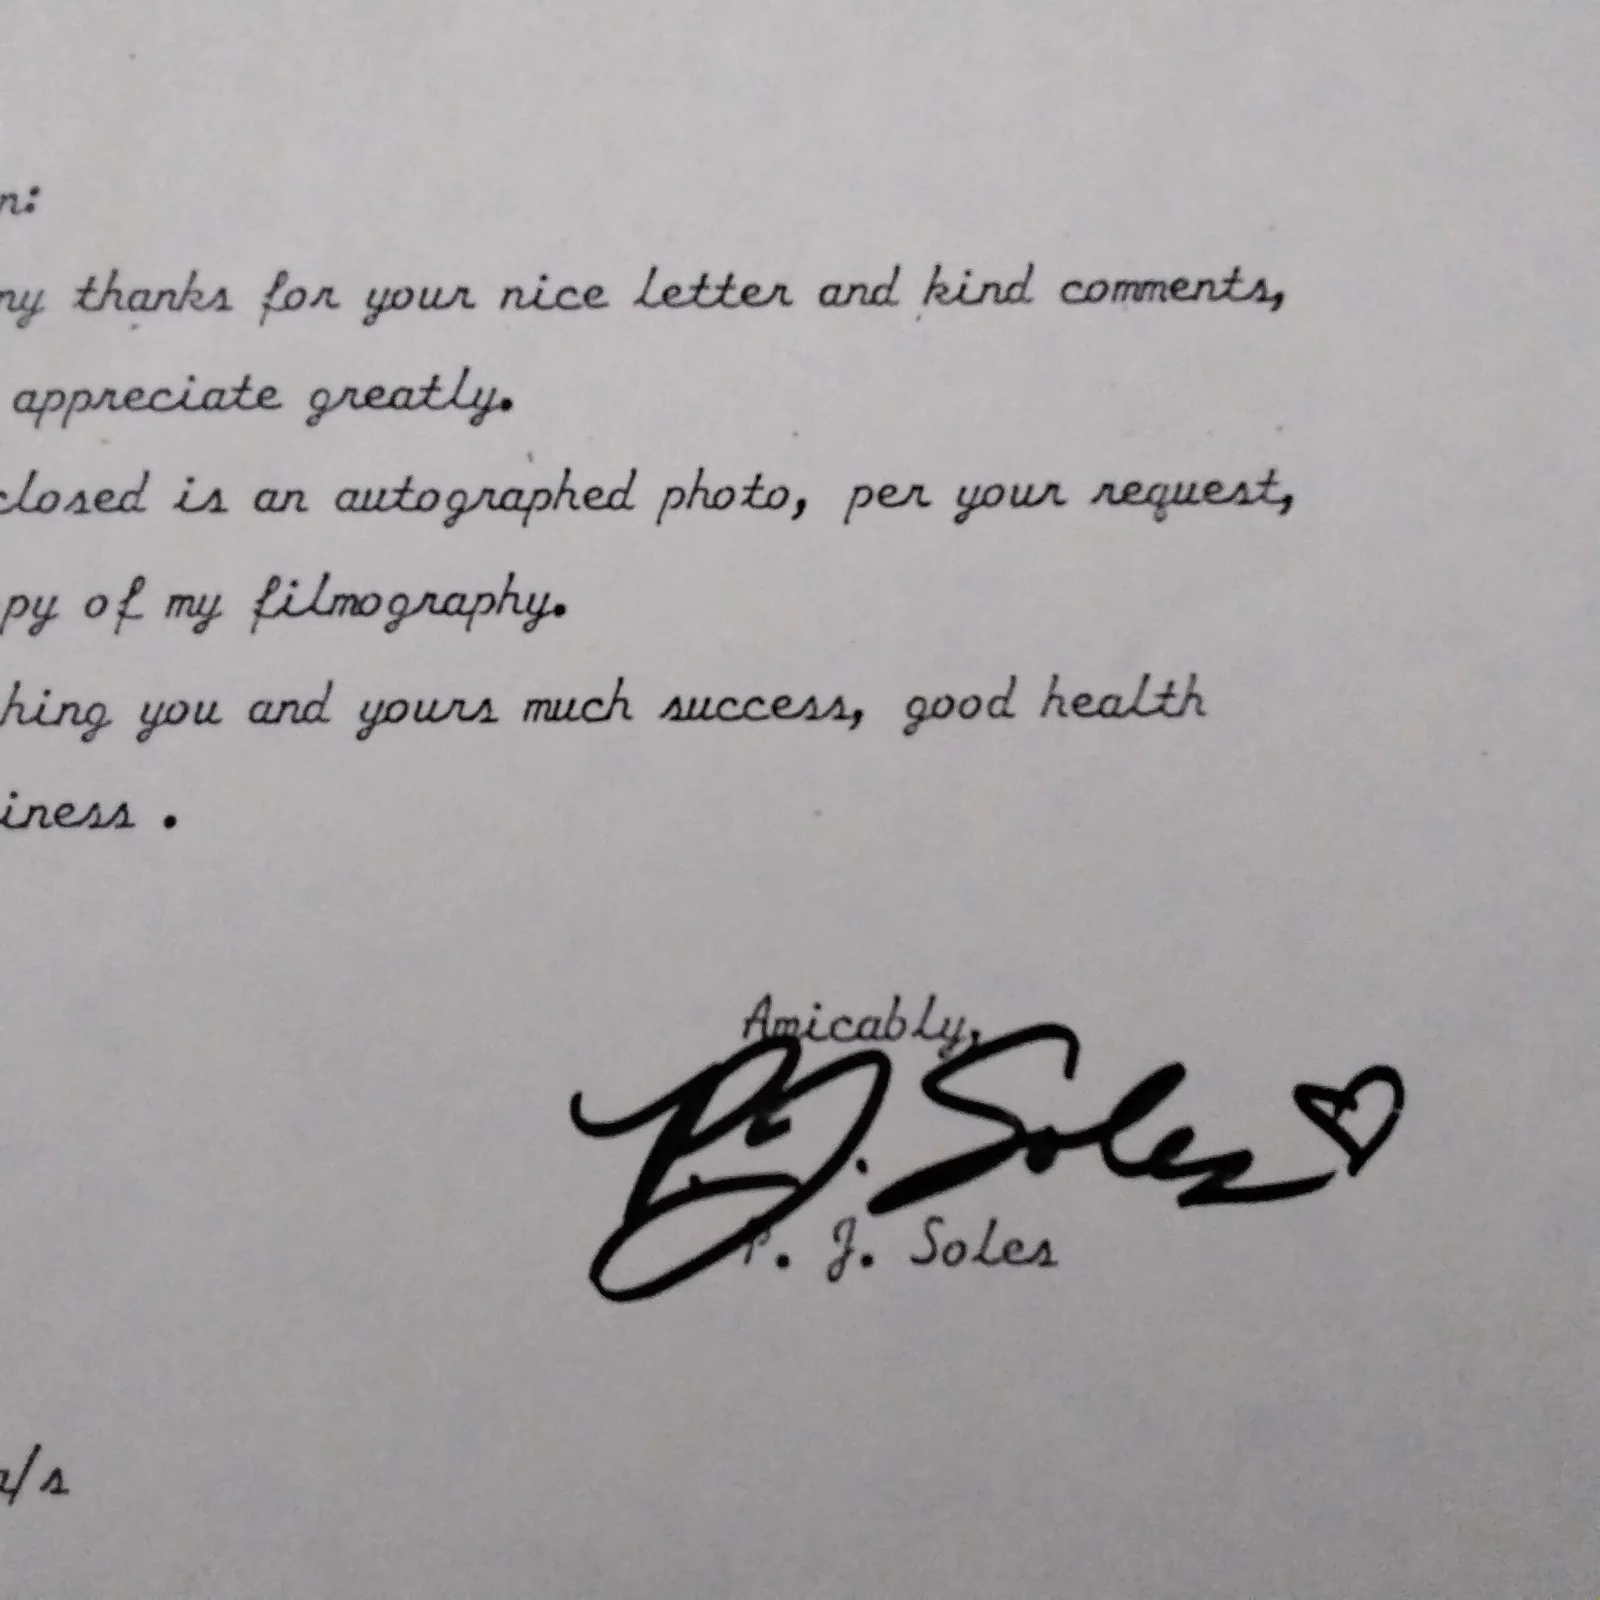 n:
ny thanks for your nice letter and kind comments,
appreciate greatly.
closed is an autographed photo, per your request,
py of my filmography.
hing you and yours much success, good health
iness .
Amicably,
P.J. Soles
P. J. Soles
a/s